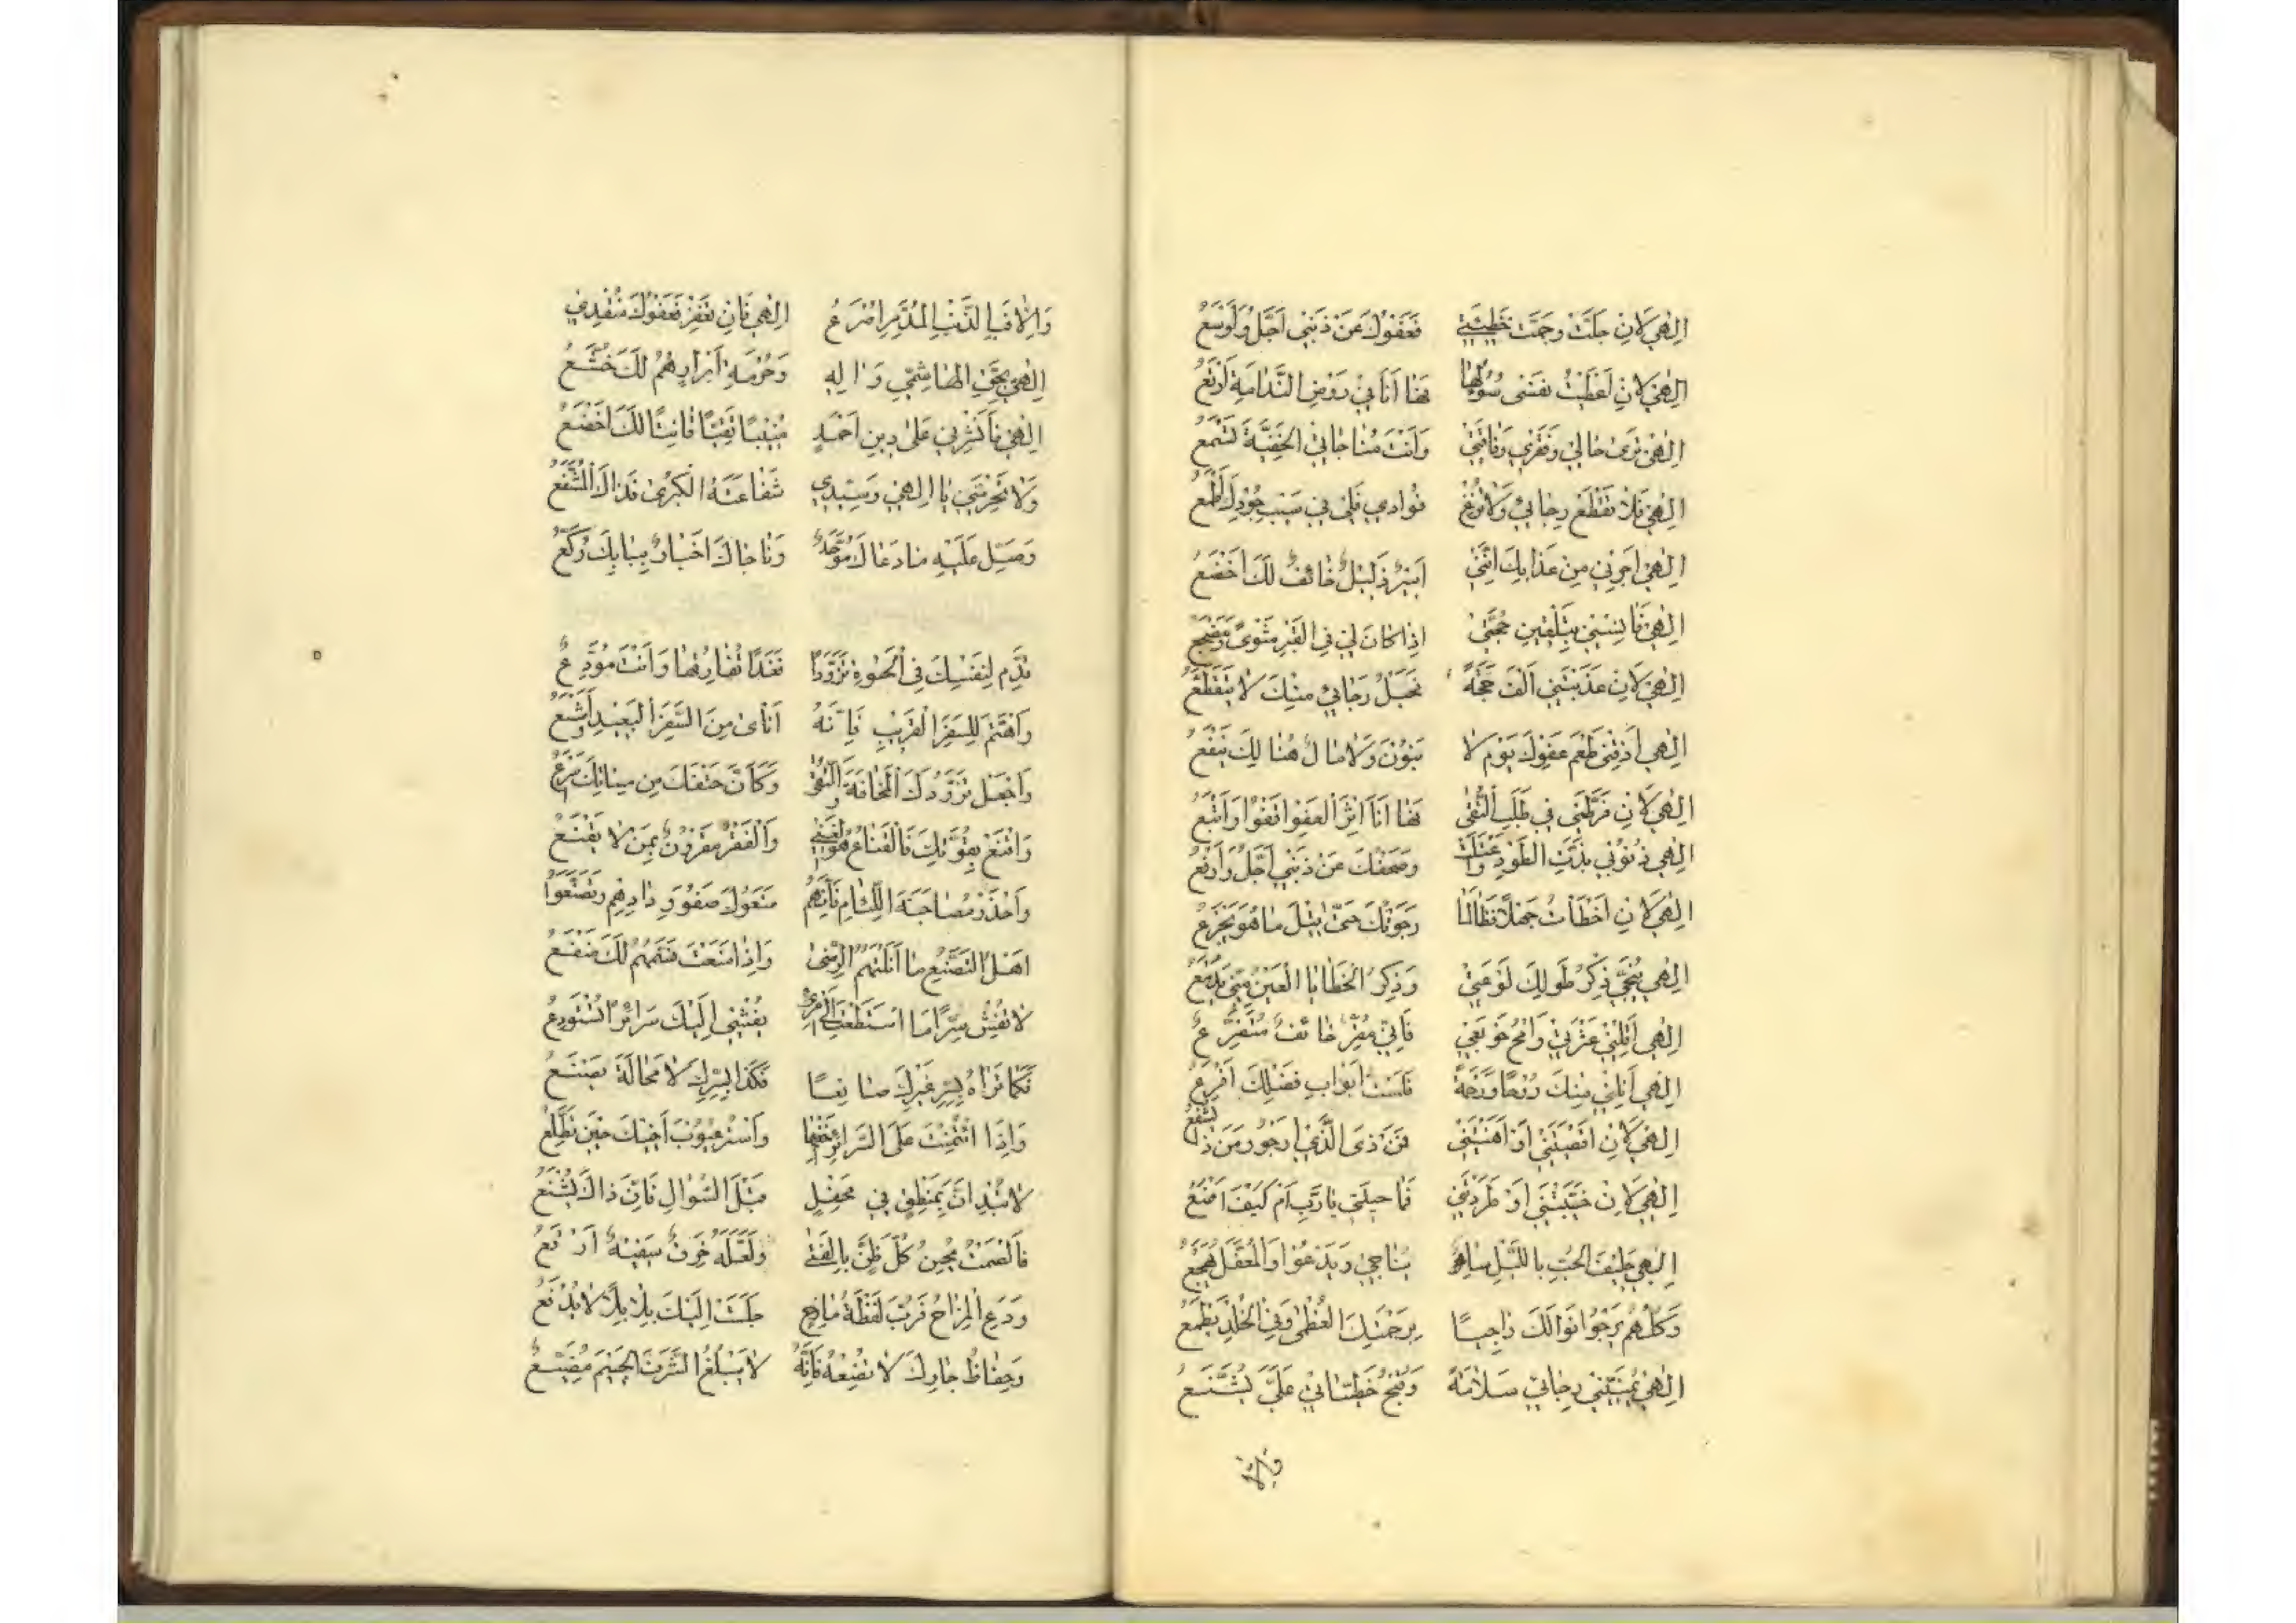 الهي لان جلت وجمت خطيئتي فعفوك عن ذنبي اجل واوسع
الهي لان اعطيت نفسي سؤلها فها انا في روض الندامة ارتع
الهي ترى حالي وفقري وفاقتي وانت مناجاتي الخفية تسمع
الهي فلا تقطع رجائي ولا تزغ فوادي فلي في سيب جودك مطمع
الهي اجرني من عذابك انني اسير ذليل خائف لك اخضع
الهي فانسني بتلقين حجتي اذا كان لي في القبر مثوى ومضجع
الهي لان عذبتني الف حجة فحبل رجائي منك لا يتقطع
الهي اذقني طعم عفوك يوم لا بنون ولا مال هنالك ينفع
الهي لان فرطتني في طلب التقى فها انا اثر العفو اقفوا واتبع
الهي ذنوبي بذت الطود واعتلت وصفحك عن ذنبي اجل وارفع
الهي لان اخطات جهلا فطالما رجوتك حتى قيل ما هو يجزع
الهي ينجي ذكر طولك لوعتي وذكر الخطايا العين مني يدمع
الهي اقلني عثرتي وامح حوبتي فاني مقر خائف متضرع
الهي انلني منك روحا ورحمة فلست ابواب فضلك اقرع
الهي لان اقصيتني او اهنتني فمن ذى الذي ارجو ومن ذا يشفع
الهي لان خيبتني او طردتني فما حيلتي يا رب ام كيف اصنع
الهي حليف الحب بالليل ساهر يناجي ويدعوا والمغفل يهجع
وكلهم يرجوا نوالك راجيا برحمتك العظمى وفي الخلد يطمع
الهي يمنيني رجائي سلامة وقبح خطيئاتي علي يشنع
والا فبالذنب المدمر اصرع الهي فان تغفر فعفوك منقذي
الهي بحق الهاشمي واله وحرمة ابرارهم لك خشع
الهي فانشرني على دين احمد منيبا تقيا قانتا لك اخضع
ولا تحرمني يا الهي وسيدي شفاعته الكبرى فذاك المشفع
وصل عليه ما دعاك موحد وناجاك اخيار ببابك ركع
قدم لنفسك في الحيوة تزودا فغدا تفارقها وانت مودع
واهتم للسفر القريب فانه اناى من السفر البعيد اشسع
واجعل تزودك المخافة والتقى وكان حتفك من مسائك اسرع
واقنع بقوتك فالقناع هو الغنى والفقر مقرون بمن لا يقنع
واحذر مصاحبة اللئام فانهم منعوك صفو ودادهم وتصنعوا
اهل التصنع ما انلتهم الرضى واذا منعت فسمهم لك منقع
لا تفش سرا ما استطعت الى امرئ يفشي اليك سرائرا تستودع
فكما تراه بسر غيرك صانعا فكذا بسرك لا محالة يصنع
واذا ائتمنت على السرائر اخفها واستر عيوب اخيك حين تطلع
لا تبدان بمنطق في محفل قبل السوال فان ذاك يشنع
فالصمت يحسن كل ظن بالفتى ولعله خرق سفيه ارقع
ودع المزاح فرب لفظة مازح جلبت اليك بلابلا لا يدفع
وحفاظ جارك لا تضعه فانه لا يبلغ الشرف الجسيم مضيع